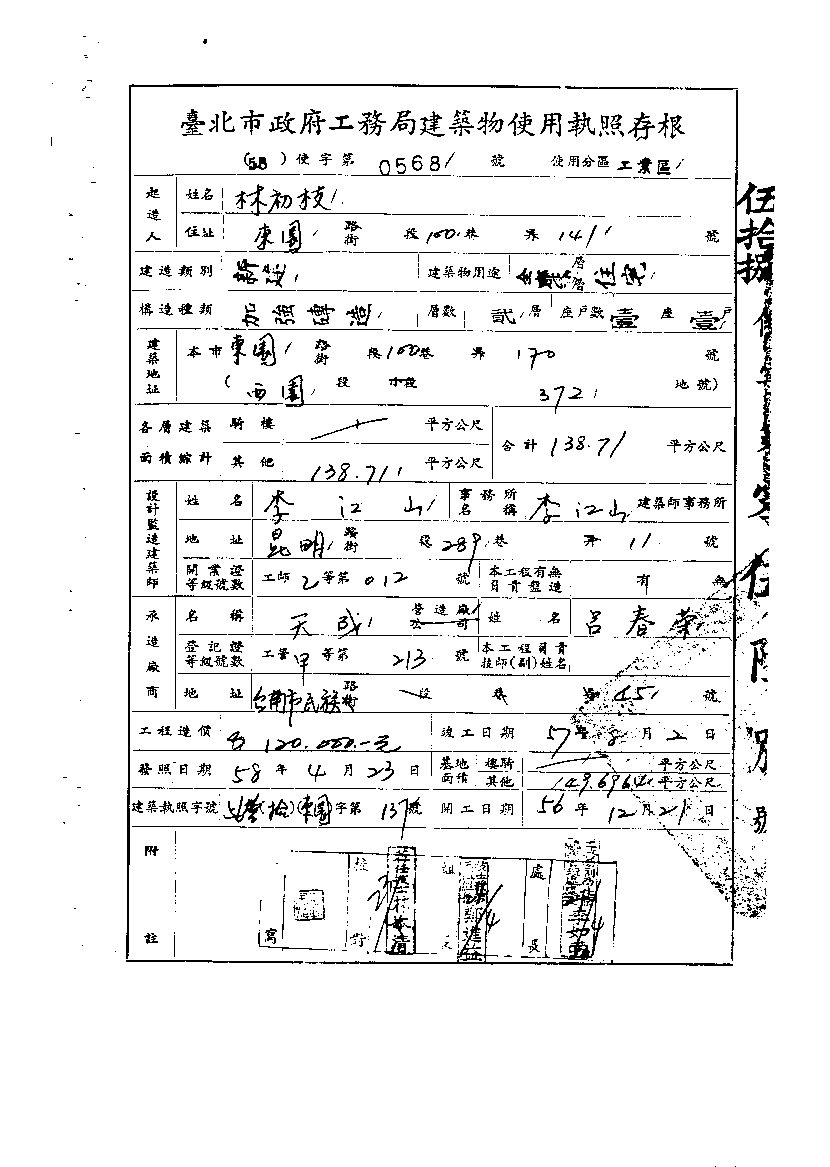 臺北市政府工務局建築物使用執照存根
(58)使字第 0568 號 使用分區 工業區
起造人 姓名 林初枝
住址 東園 路街 段 100 巷 弄 14 號
建造類別 新建 建築物用途 全 層 住宅
構造種類 加強磚造 層數 貳 層 座戶數 壹 座 壹 戶
建築地址 本市 東園 路街 段 100 巷 弄 170 號
(西園 段 小段 372 地號)
各層建築面積綜計 騎樓 平方公尺 合計 138.71 平方公尺
其他 138.71 平方公尺
設計監造建築師 姓名 李江山 事務所名稱 李江山 建築師事務所
地址 昆明 路街 段 289 巷 弄 11 號
開業證等級號數 工師 乙 等第 012 號 本工程有無負責監造 有 無
承造廠商 名稱 天成 營造廠公司 姓名 呂春榮
登記證等級號數 工營 甲 等第 213 號 本工程負責技師(副)姓名
地址 台南市民族 路街 段 巷 弄 45 號
工程造價 120.000.-元 竣工日期 57 年 8 月 2 日
發照日期 58 年 4 月 23 日 基地面積 樓騎 平方公尺
其他 149.6964 平方公尺
建築執照字號 (東園)字第 137 號 開工日期 56 年 12 月 21 日
附註
寫 校對 組長 處長
伍拾捌使
號